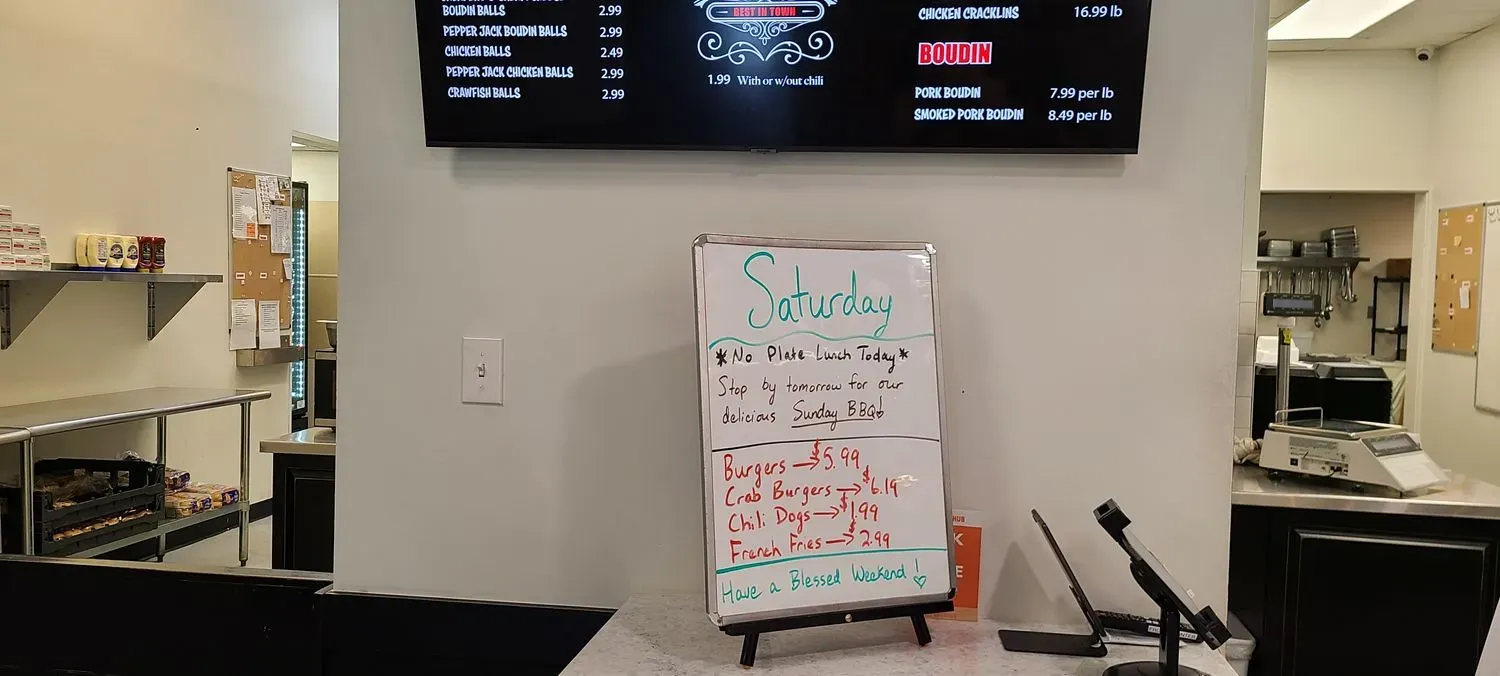 BOUDIN BALLS 2.99
PEPPER JACK BOUDIN BALLS 2.99
CHICKEN BALLS 2.49
PEPPER JACK CHICKEN BALLS 2.99
CRAWFISH BALLS 2.99
BEST IN TOWN
1.99 With or w/out chili
CHICKEN CRACKLINS 16.99 lb
BOUDIN
PORK BOUDIN 7.99 per lb
SMOKED PORK BOUDIN 8.49 per lb
Saturday
*No Plate Lunch Today*
Stop by tomorrow for our
delicious Sunday BBQ!
Burgers → $5.99
Crab Burgers → $6.19
Chili Dogs → $1.99
French Fries → $2.99
Have a Blessed Weekend! ♡
HUB
K
E